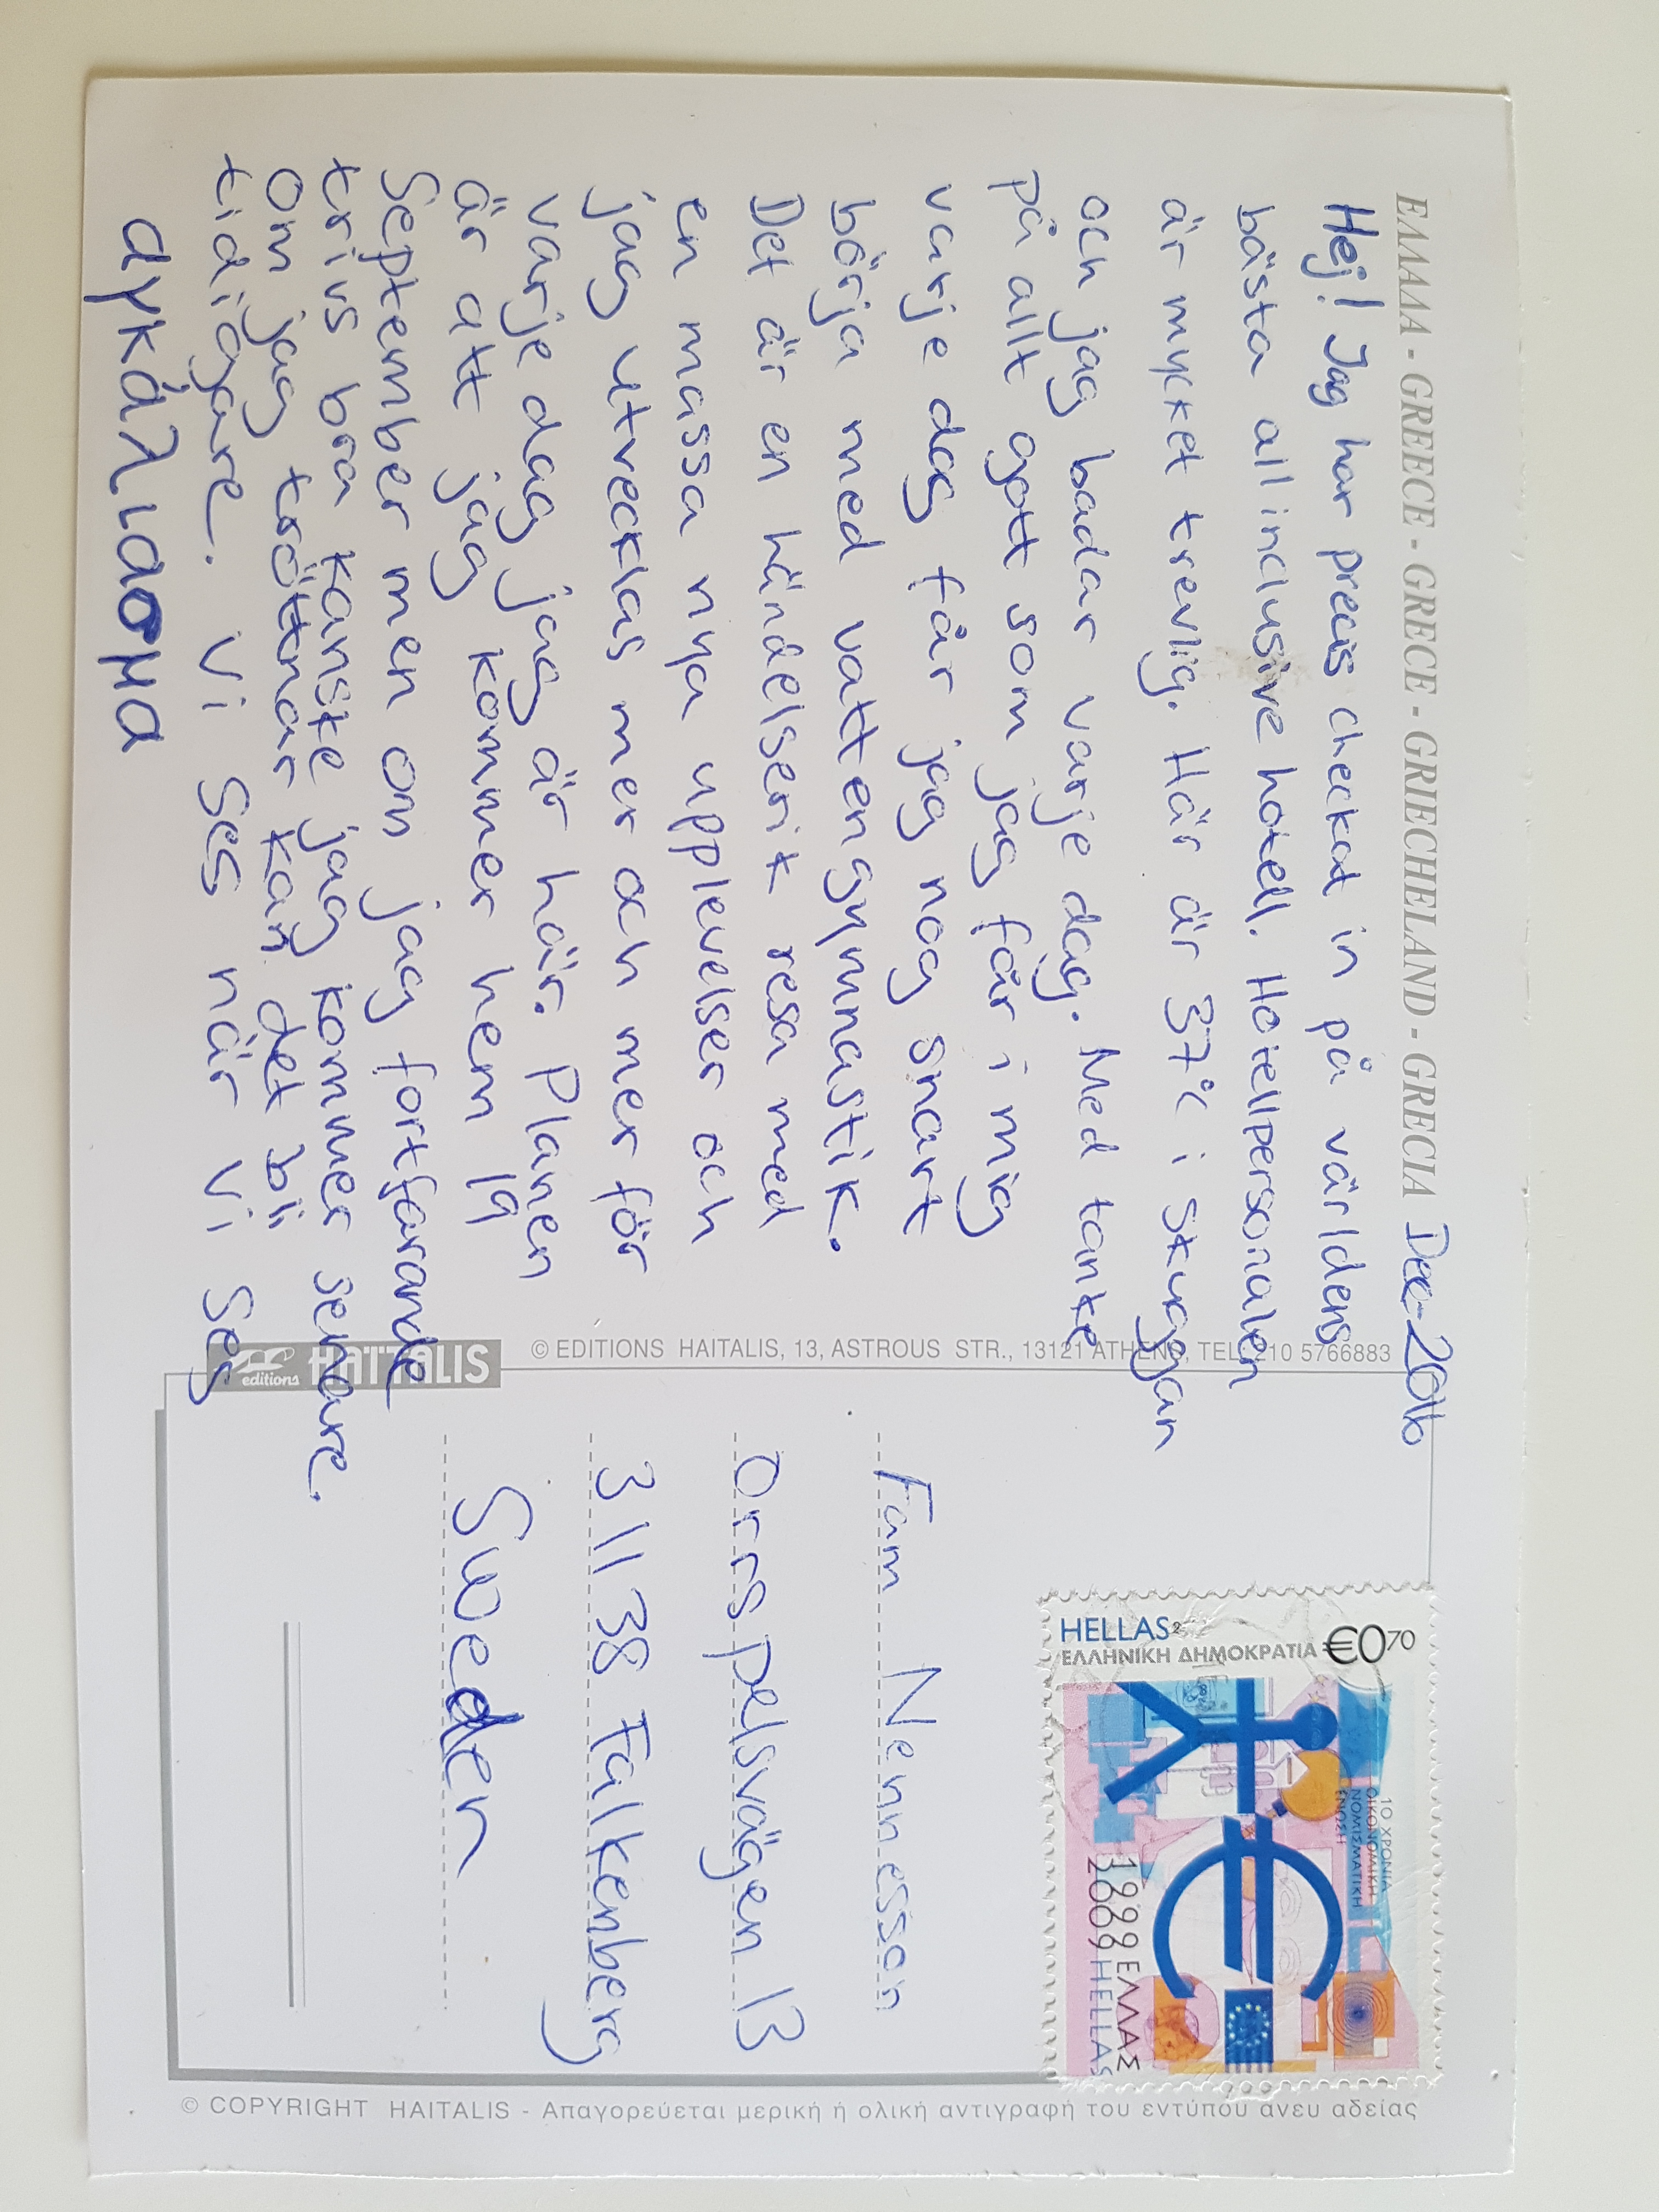 ΕΛΛΑΔΑ - GREECE - GRECE - GRIECHELAND - GRECIA Dec-2016
Hej! Jag har precis checkat in på världens
bästa all inclusive hotell. Hotellpersonalen
är mycket trevlig. Här är 37°C i stuggan
och jag badar varje dag. Med tanke
på allt gott som jag får i mig
varje dag får jag nog snart
börja med vattengymnastik.
Det är en händelserik resa med
en massa nya upplevelser och
jag utvecklas mer och mer för
varje dag jag är här. Planen
är att jag kommer hem 19
September men om jag fortfarande
trivs bra kanske jag kommer senare.
Om jag tröttnar kan det bli
tidigare. Vi ses när vi ses
αγκάλιασμα
© EDITIONS HAITALIS, 13, ASTROUS STR., 13121 ATHENS, TEL. 210 5766883
HAITALIS
editions
HELLAS
ΕΛΛΗΝΙΚΗ ΔΗΜΟΚΡΑΤΙΑ €0,70
10 ΧΡΟΝΙΑ
ΟΙΚΟΝΟΜΙΚΗ
ΝΟΜΙΣΜΑΤΙΚΗ
ΕΝΩΣΗ
1999 ΕΛΛΑΣ
2009 HELLAS
Fam Nennesson
Orrspelsvägen 13
31138 Falkenberg
Sweden
© COPYRIGHT HAITALIS - Απαγορεύεται μερική ή ολική αντιγραφή του εντύπου άνευ αδείας